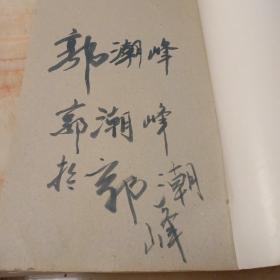 郭潮峰
郭潮峰
於郭潮峰